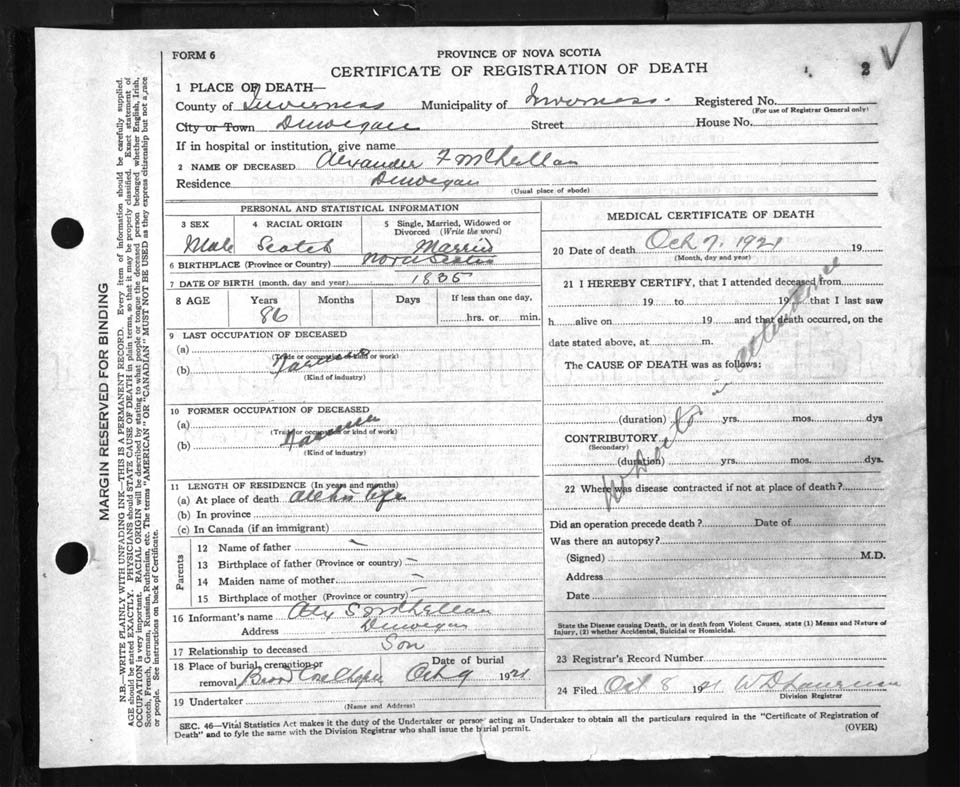 FORM 6
PROVINCE OF NOVA SCOTIA
CERTIFICATE OF REGISTRATION OF DEATH
2
1 PLACE OF DEATH—
County of Inverness Municipality of Inverness. Registered No.
(For use of Registrar General only)
City or Town Dunvegan Street House No.
If in hospital or institution, give name
2 NAME OF DECEASED Alexander F McLellan
Residence Dunvegan
(Usual place of abode)
PERSONAL AND STATISTICAL INFORMATION
3 SEX 4 RACIAL ORIGIN 5 Single, Married, Widowed or Divorced (Write the word)
Male Scotch Married
6 BIRTHPLACE (Province or Country) Nova Scotia
7 DATE OF BIRTH (month, day and year) 1835
8 AGE Years Months Days If less than one day,
86 hrs. or min.
9 LAST OCCUPATION OF DECEASED
(a)
(Trade or occupation or kind of work)
(b) Farmer
(Kind of industry)
10 FORMER OCCUPATION OF DECEASED
(a)
(Trade or occupation or kind of work)
(b) Farmer
(Kind of industry)
11 LENGTH OF RESIDENCE (In years and months)
(a) At place of death all his life
(b) In province
(c) In Canada (if an immigrant)
Parents
12 Name of father —
13 Birthplace of father (Province or country) —
14 Maiden name of mother —
15 Birthplace of mother (Province or country) —
16 Informant's name Alex McLellan
Address Dunvegan
17 Relationship to deceased Son
18 Place of burial, cremation or removal Broad Cove Chapel Date of burial Oct 9 1921
19 Undertaker
(Name and Address)
MEDICAL CERTIFICATE OF DEATH
20 Date of death Oct 7, 1921 19
(Month, day and year)
21 I HEREBY CERTIFY, that I attended deceased from
19 to 19 that I last saw
h alive on 19 and that death occurred, on the
date stated above, at m.
The CAUSE OF DEATH was as follows:
No Doctor in attendance
(duration) yrs. mos. dys
CONTRIBUTORY
(Secondary)
(duration) yrs. mos. dys.
22 Where was disease contracted if not at place of death?
Did an operation precede death? Date of
Was there an autopsy?
(Signed) M.D.
Address
Date
State the Disease causing Death, or in death from Violent Causes, state (1) Means and Nature of
Injury, (2) whether Accidental, Suicidal or Homicidal.
23 Registrar's Record Number
24 Filed Oct 8 1921 W D Lawrence
Division Registrar
SEC. 46—Vital Statistics Act makes it the duty of the Undertaker or person acting as Undertaker to obtain all the particulars required in the "Certificate of Registration of
Death" and to fyle the same with the Division Registrar who shall issue the burial permit.
(OVER)
MARGIN RESERVED FOR BINDING
N.B.—WRITE PLAINLY WITH UNFADING INK—THIS IS A PERMANENT RECORD. Every item of information should be carefully supplied.
AGE should be stated EXACTLY. PHYSICIANS should STATE CAUSE OF DEATH in plain terms, so that it may be properly classified. Exact statement of
OCCUPATION is very important. RACIAL ORIGIN will be described by stating to what people or tongue the deceased person belonged whether English, Irish,
Scotch, French, German, Russian, Ruthenian, etc. The terms "AMERICAN" OR "CANADIAN" MUST NOT BE USED as they express citizenship but not a race
or people. See instructions on back of Certificate.